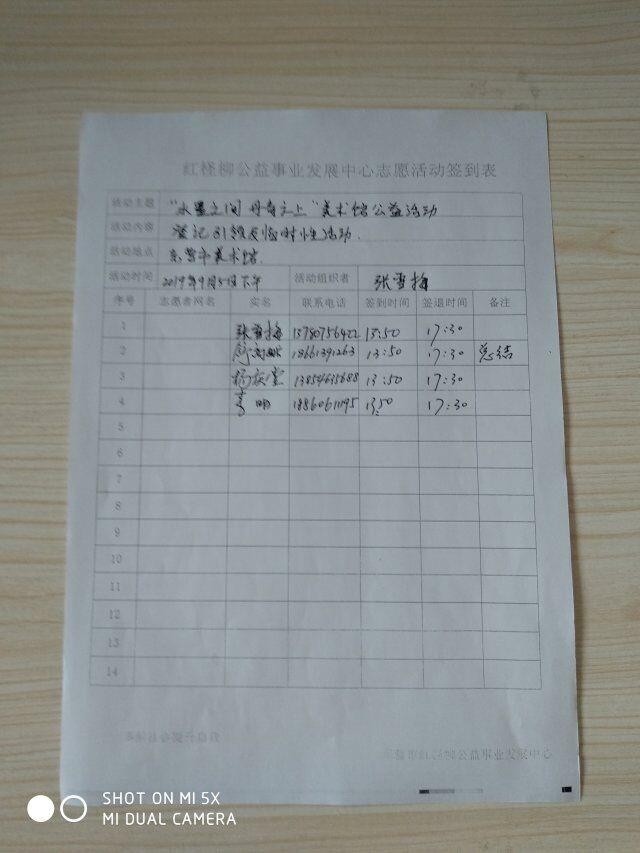 红柽柳公益事业发展中心志愿活动签到表
活动主题 "水墨之间 丹青之上"美术馆公益活动
活动内容 登记引领及临时性活动.
活动地点 东营市美术馆.
活动时间 2019年9月5日下午 活动组织者 张雪梅
序号 志愿者网名 实名 联系电话 签到时间 签退时间 备注
1 张雪梅 13780756422 13:50 17:30
2 18661391263 13:50 17:30 总结
3 13854635688 13:50 17:30
4 18860611195 13:50 17:30
5
6
7
8
9
10
11
12
13
14
东营市红柽柳公益事业发展中心
SHOT ON MI 5X
MI DUAL CAMERA